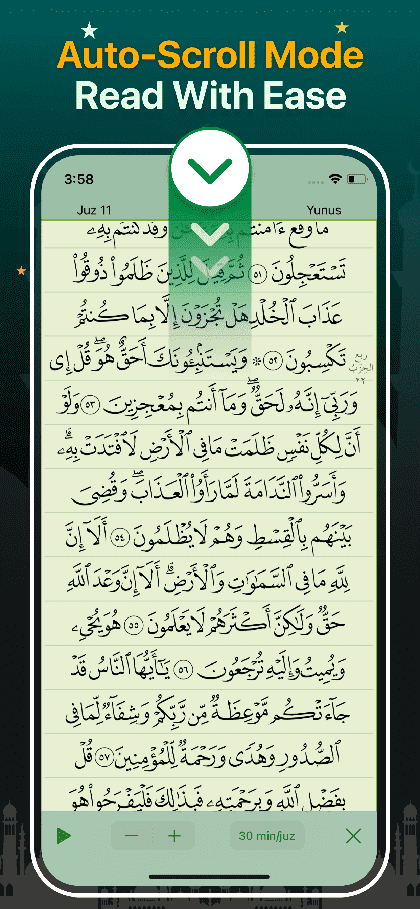 Auto-Scroll Mode
Read With Ease
3:58
Juz 11
Yunus
مَا وَقَعَ ءَامَنتُم بِهِۦٓ وَقَدْ كُنتُم بِهِۦ
تَسْتَعْجِلُونَ ٥١ ثُمَّ قِيلَ لِلَّذِينَ ظَلَمُوا۟ ذُوقُوا۟
عَذَابَ ٱلْخُلْدِ هَلْ تُجْزَوْنَ إِلَّا بِمَا كُنتُمْ
تَكْسِبُونَ ٥٢ ۞ وَيَسْتَنۢبِـُٔونَكَ أَحَقٌّ هُوَ ۖ قُلْ إِى
ربع
الحزب
٢٢
وَرَبِّىٓ إِنَّهُۥ لَحَقٌّ ۖ وَمَآ أَنتُم بِمُعْجِزِينَ ٥٣ وَلَوْ
أَنَّ لِكُلِّ نَفْسٍ ظَلَمَتْ مَا فِى ٱلْأَرْضِ لَٱفْتَدَتْ بِهِۦ ۗ
وَأَسَرُّوا۟ ٱلنَّدَامَةَ لَمَّا رَأَوُا۟ ٱلْعَذَابَ ۖ وَقُضِىَ
بَيْنَهُم بِٱلْقِسْطِ ۚ وَهُمْ لَا يُظْلَمُونَ ٥٤ أَلَآ إِنَّ
لِلَّهِ مَا فِى ٱلسَّمَـٰوَٰتِ وَٱلْأَرْضِ ۗ أَلَآ إِنَّ وَعْدَ ٱللَّهِ
حَقٌّ وَلَـٰكِنَّ أَكْثَرَهُمْ لَا يَعْلَمُونَ ٥٥ هُوَ يُحْىِۦ
وَيُمِيتُ وَإِلَيْهِ تُرْجَعُونَ ٥٦ يَـٰٓأَيُّهَا ٱلنَّاسُ قَدْ
جَآءَتْكُم مَّوْعِظَةٌ مِّن رَّبِّكُمْ وَشِفَآءٌ لِّمَا فِى
ٱلصُّدُورِ وَهُدًى وَرَحْمَةٌ لِّلْمُؤْمِنِينَ ٥٧ قُلْ
بِفَضْلِ ٱللَّهِ وَبِرَحْمَتِهِۦ فَبِذَٰلِكَ فَلْيَفْرَحُوا۟ هُوَ
30 min/juz